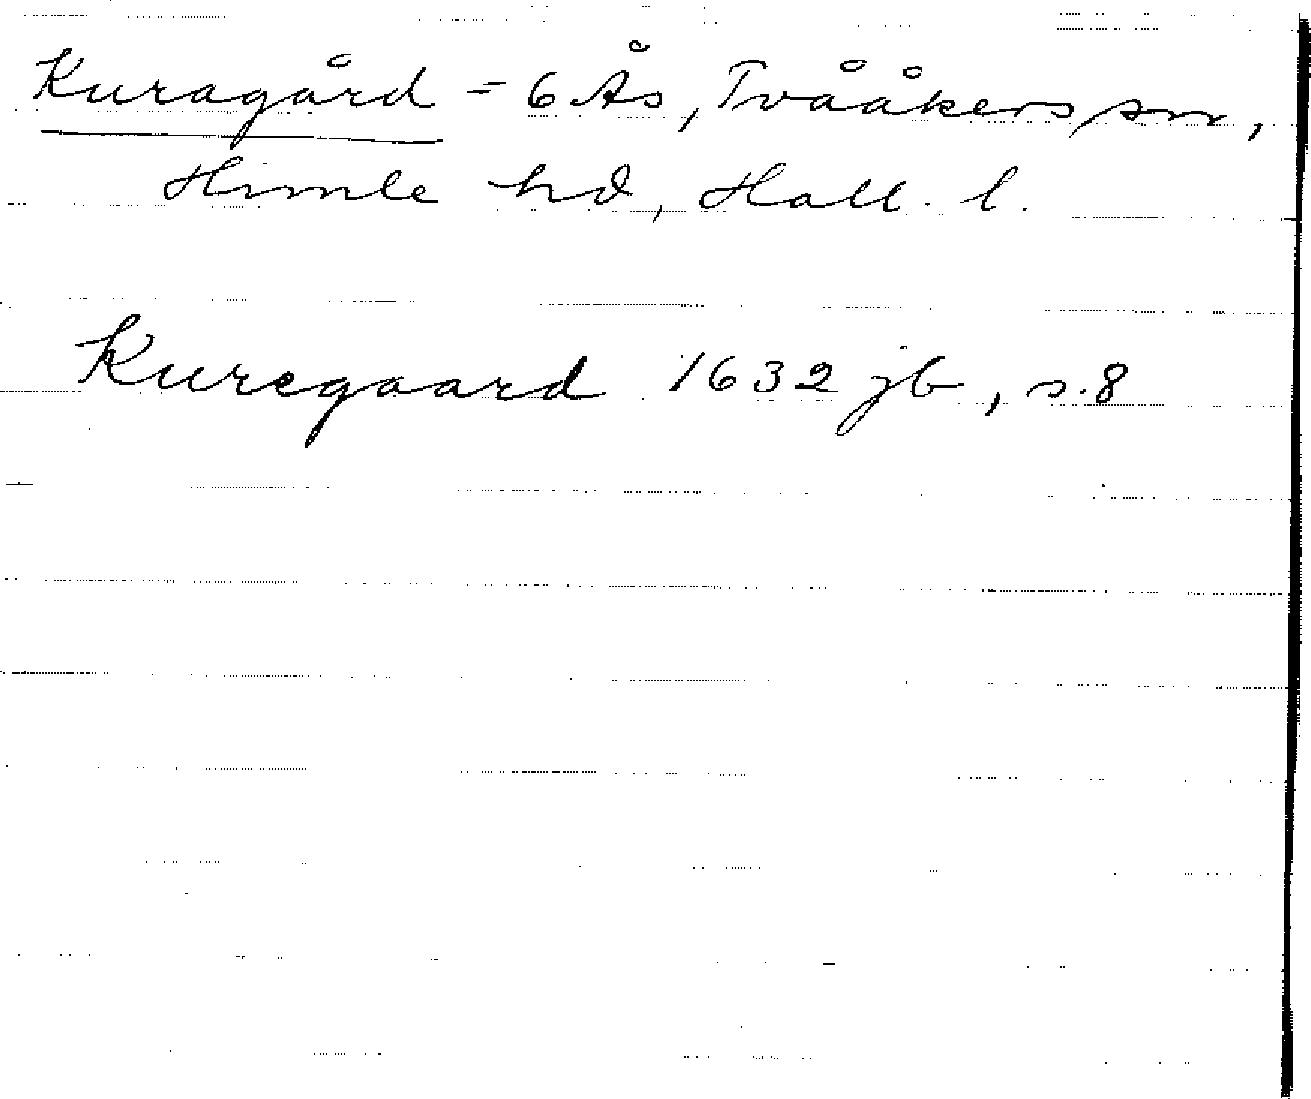 Kuragård = 6 Ås, Tvååkers sn,
Himle hd, Hall. l.
Kuregaard 1632 jb, s. 8